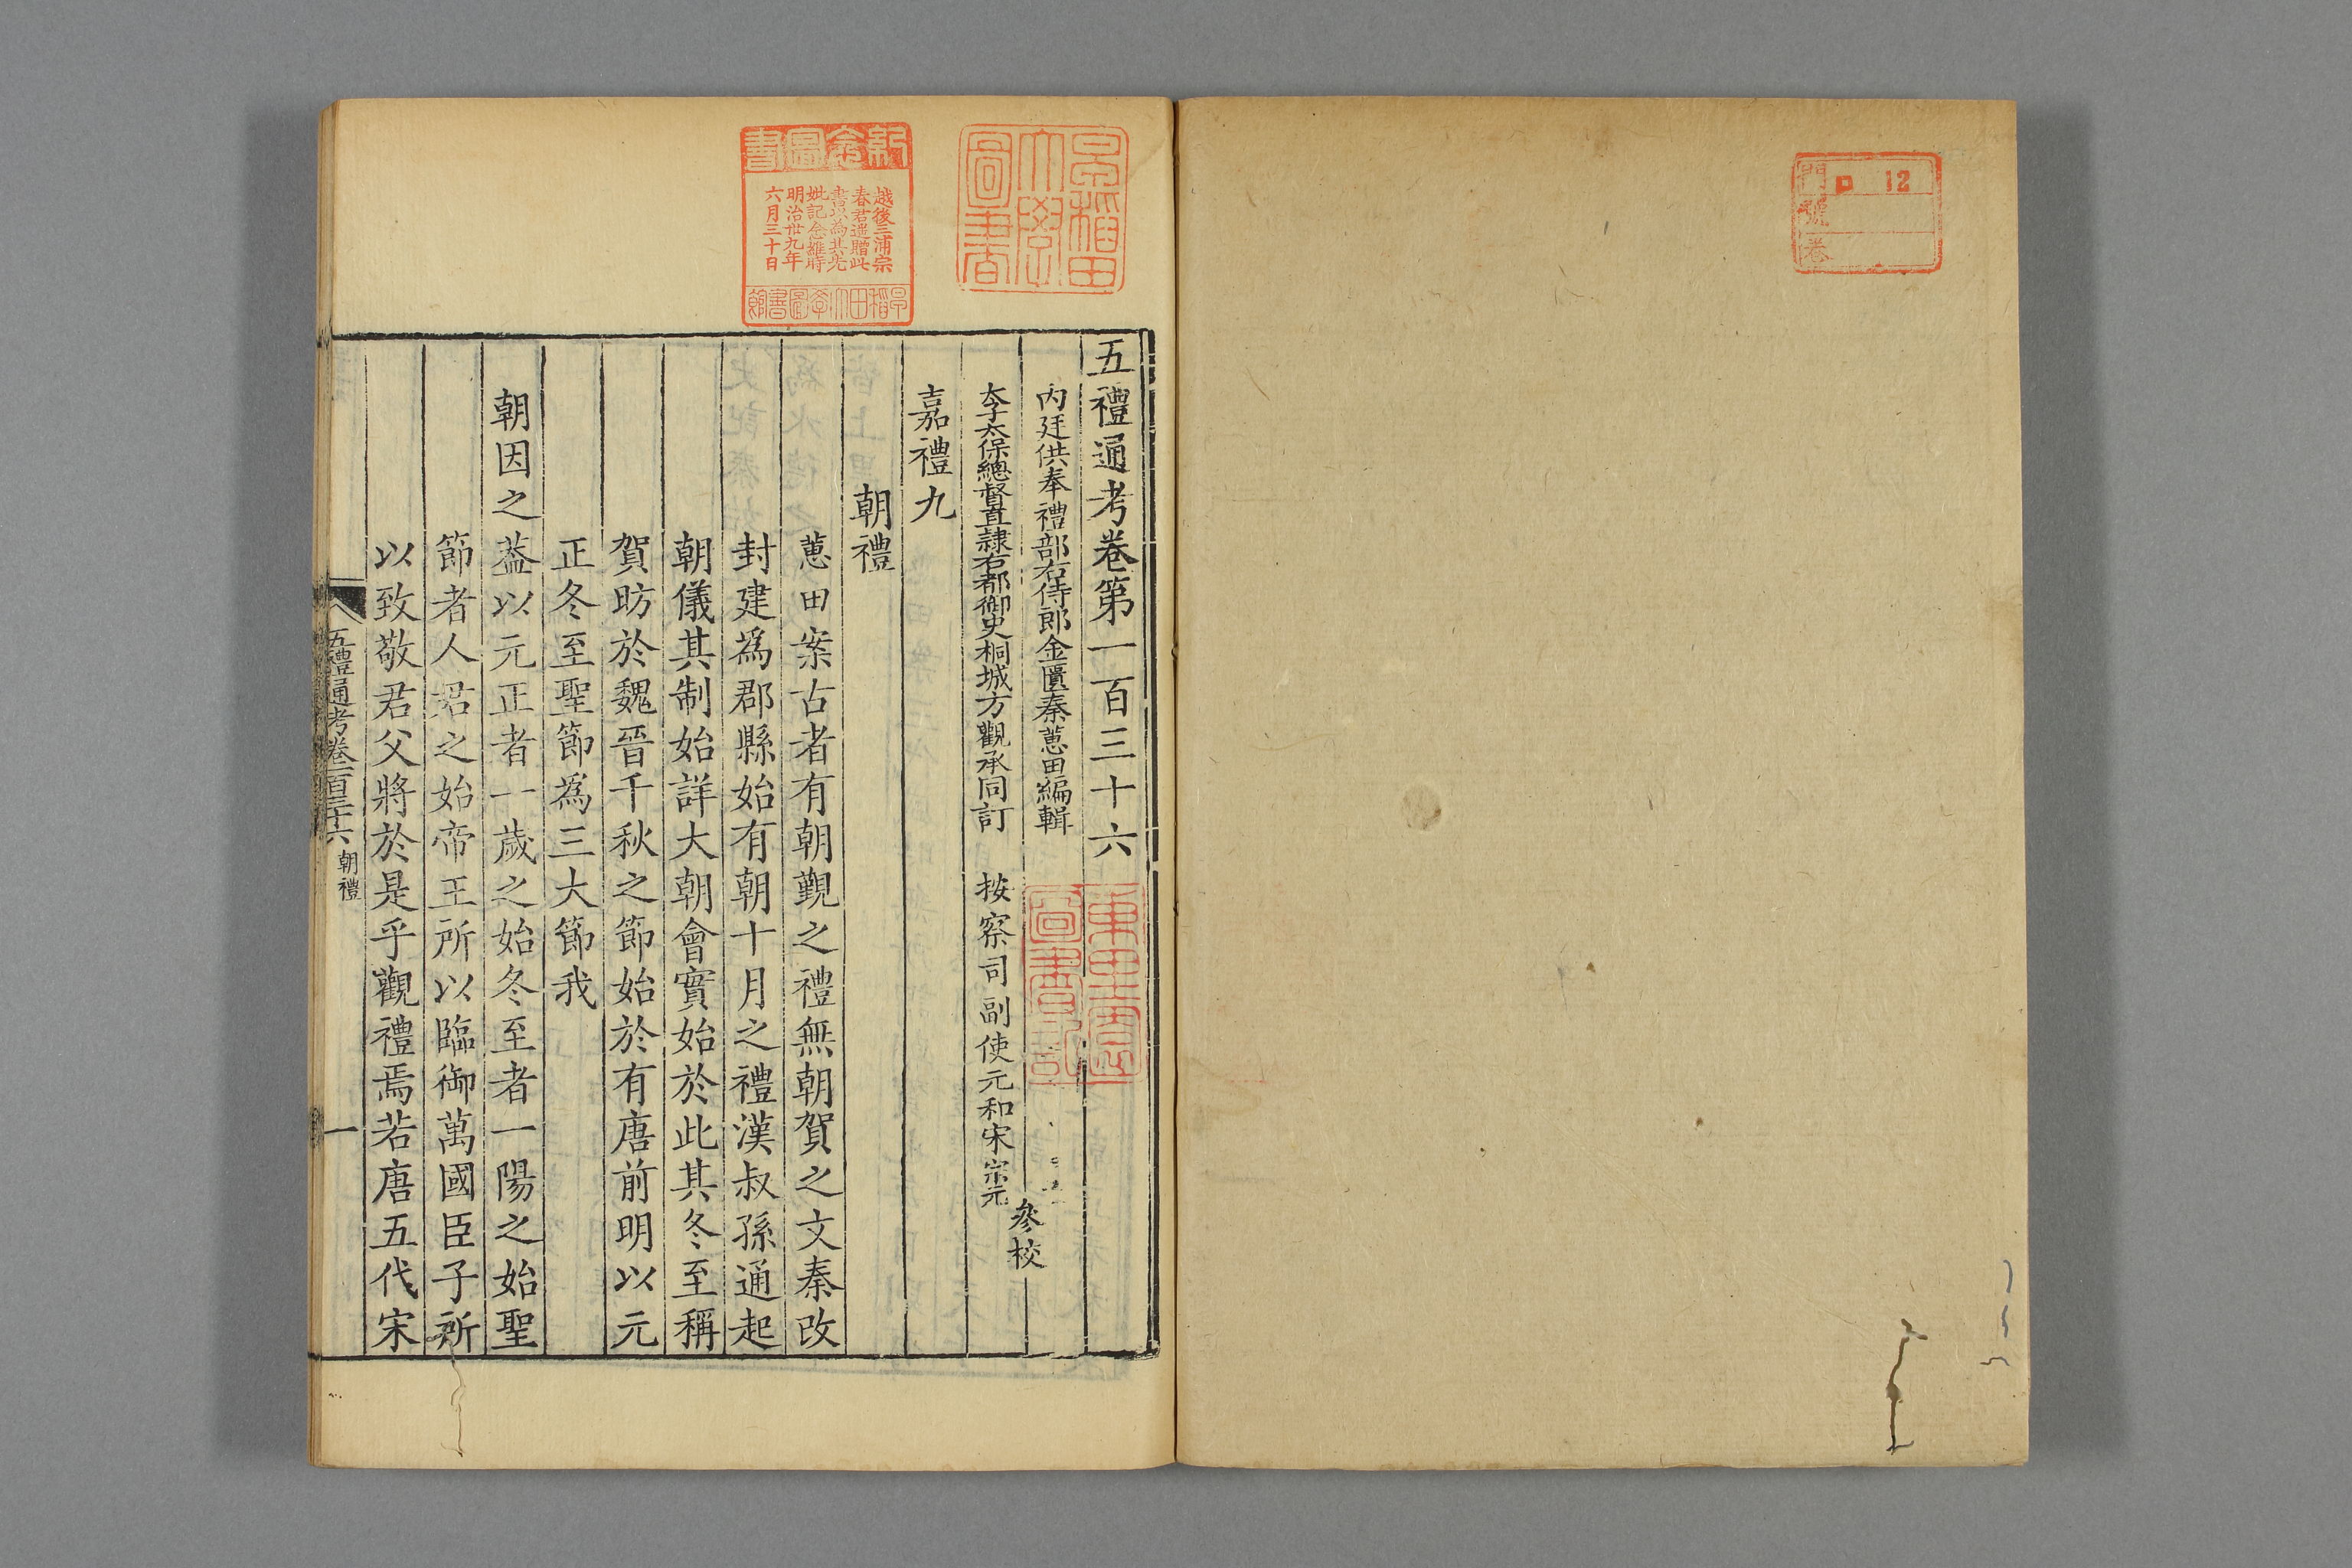 門 ロ 12
號
卷
早稲田
大學
圖書
紀念圖書
越後三浦宗
春君遥贈此
書以為其先
妣記念雖時
明治卅九年
六月三十日
早稲田大學圖書館
五禮通考卷第一百三十六
內廷供奉禮部右侍郎金匱秦蕙田編輯
太子太保總督直隸右都御史桐城方觀承同訂 按察司副使元和宋宗元
參校
嘉禮九
朝禮
蕙田案古者有朝覲之禮無朝賀之文秦改
封建為郡縣始有朝十月之禮漢叔孫通起
朝儀其制始詳大朝會實始於此其冬至稱
賀昉於魏晉千秋之節始於有唐前明以元
正冬至聖節為三大節我
朝因之葢以元正者一歲之始冬至者一陽之始聖
節者人君之始帝王所以臨御萬國臣子所
以致敬君父將於是乎觀禮焉若唐五代宋
五禮通考卷一百三十六 朝禮 一